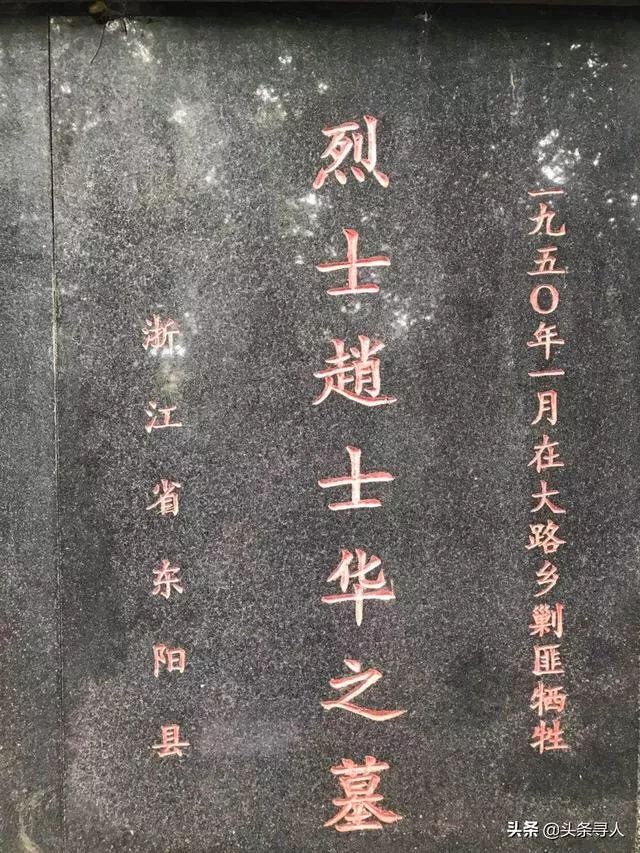 一九五〇年一月在大路乡剿匪牺牲
烈士趙士华之墓
浙江省东阳县
头条 @头条寻人